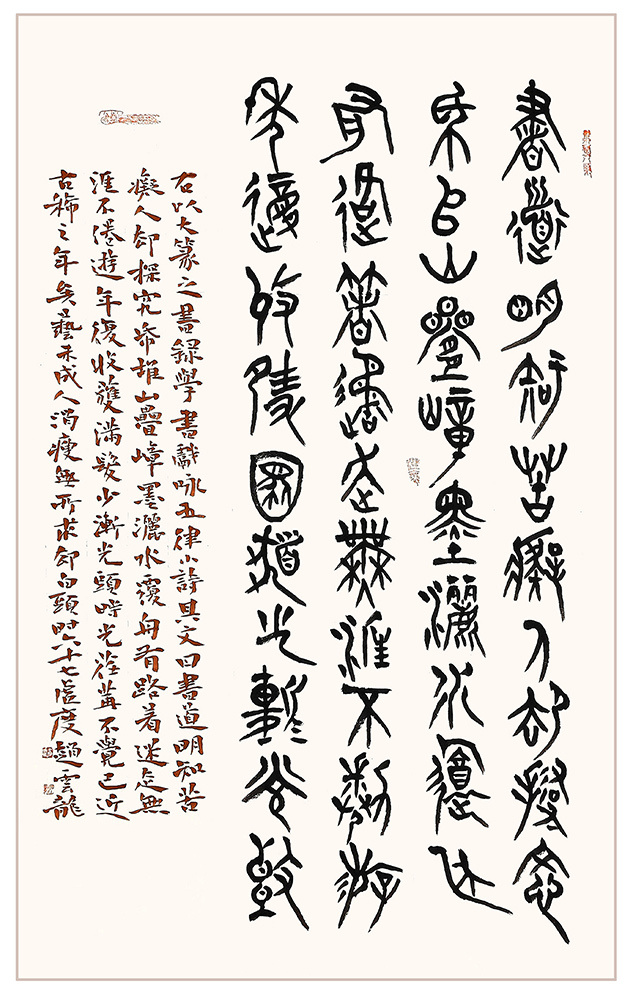 書道明知苦癡人却探究
帋堆山疊嶂墨灑水覆舟
有路着迷足無涯不倦遊
年復收獲滿髮少漸光頭
右以大篆之書錄學書戲咏五律小詩其文曰書道明知苦
癡人却探究帋堆山疊嶂墨灑水覆舟有路着迷足無
涯不倦遊年復收獲滿髮少漸光頭時光荏苒不覺已近
古稀之年矣藝未成人消瘦無所求却白頭時六十七虛度趙雲龍